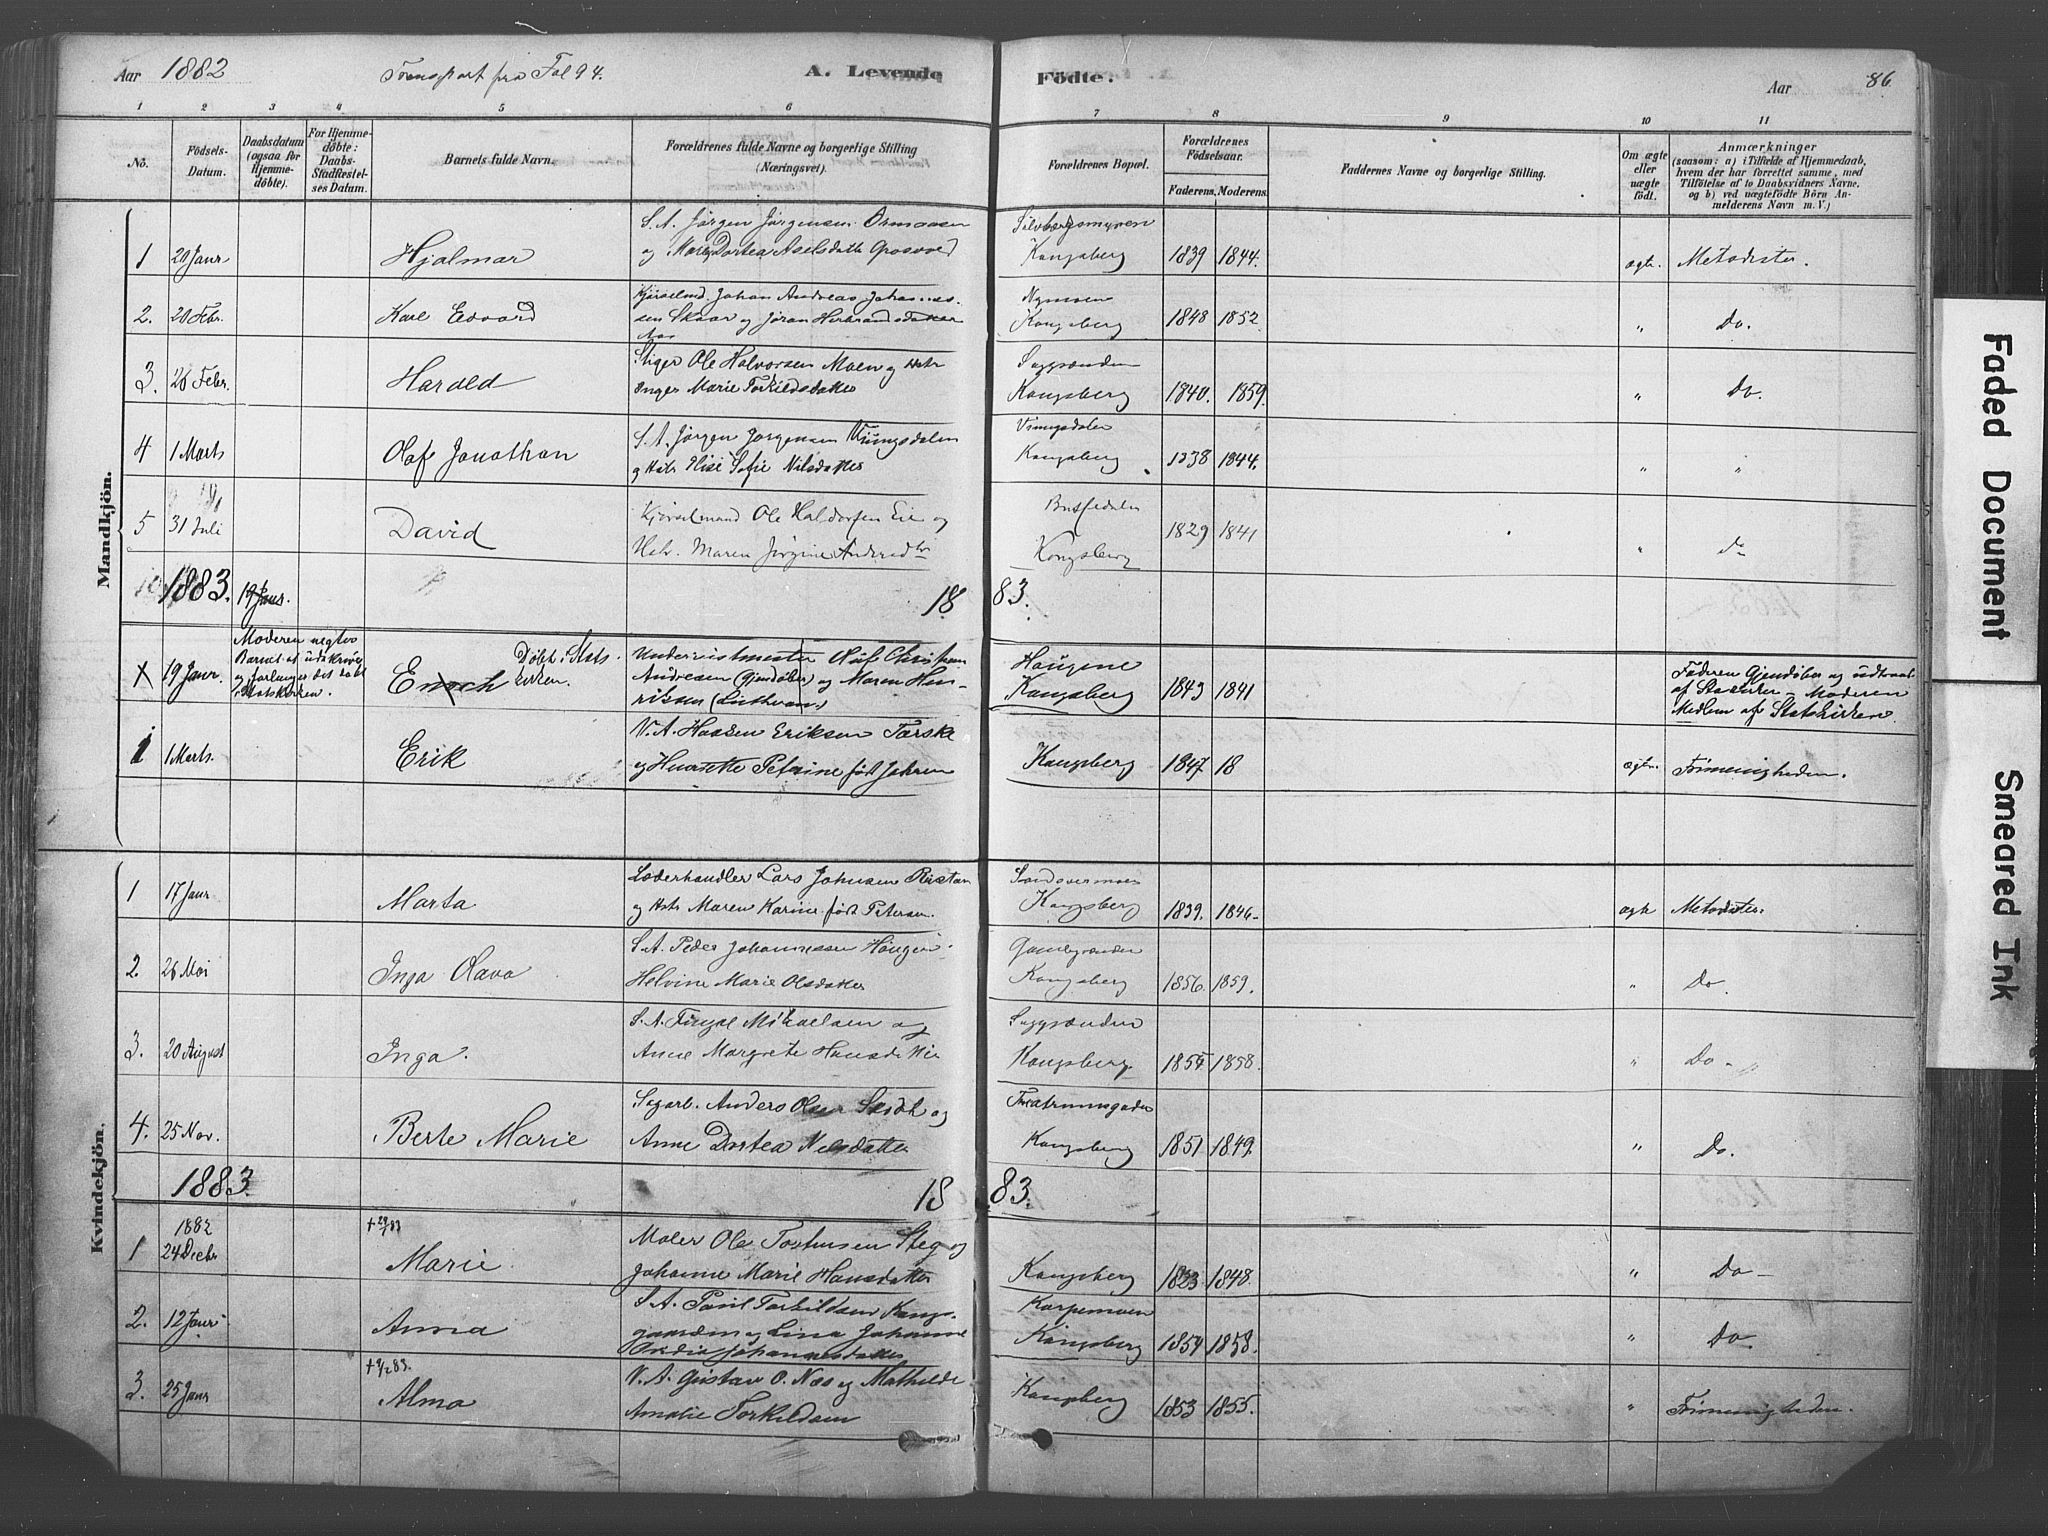 Aar 1882 Transport fra Fol 94. A. Levende Födte. Aar 86
1 2 3 4 5 6 7 8 9 10 11
No.
Födsels-Datum.
Daabsdatum (ogsaa for Hjemmedöbte).
For Hjemmedöbte: Daabs-Stadfæstelses Datum.
Barnets fulde Navn.
Forældrenes fulde Navne og borgerlige Stilling (Næringsvei).
Forældrenes Bopæl.
Forældrenes Födselsaar.
Faderens. Moderens.
Faddernes Navne og borgerlige Stilling.
Om ægte eller uægte födt.
Anmærkninger (saasom: a) i Tilfælde af Hjemmedaab, hvem der har forrettet samme, med Tilföielse af to Daabsvidners Navne, og b) ved uægtefödte Börn Anmelderens Navn m. V.)
Mandkjön.
S. A. Jørgen Jørgensen Ormaasen
1 20 Janr Hjalmar og Maren Dortea Axelsdatter
Kongsberg 1839 1844. ægte. Metodister.
2. 20 Febr. Karl Edvard Kjørselmd. Johan Andreas Johannes-
sen Skaar og Jøran Herbrandsdatter
Nymoen
Kongsberg 1848 1852. " Do.
3. 26 Febr. Harald Stiger Ole Halvorsen Moen og Hstr
Inger Marie Torkildsdatter
Kongsberg 1840. 1859. " Do.
4 1 Marts Olaf Jonathan S. A. Jørgen Jørgensen Viningsdalen
og Hstr Elise Sofie Nilsdatter
Viningsdalen
Kongsberg 1838 1844. " "
5 31 Juli David Kjørselmand Ole Haldorsen Eie og
Hstr. Maren Jørgine Andersdtr
Kongsberg 1829 1841 " Do
1883. 19 Janr. 18 83.
X 19 Janr. Moderen negtes
Barnet at udskrives
og forlanger det døbt
i Statskirken.
Enoch Døbt i Stats
kirken.
Olaf Christian
Andresen (Gjendøber) og Maren Hen-
riksen (Lutheran)
Haugene
Kongsberg 1843 1841
Faderen Gjendøber og udtraadt
af Statskirken – Moderen
Medlem af Statskirken.
1 1 Marts. Erik V. A. Haagen Eriksen Torske
og Henriette Petrine født Johnsen
Kongsberg 1847. 18 ægte. Frimenigheden.
Kvindekjön.
1 17 Janr Marta Læderhandler Lars Johnsen Ristan
og Hstr Maren Karine født Petersen.
Kongsberg 1839. 1846. ægte Metodister.
2. 26 Mai Inga Olava S. A. Peder Johannessen Haugen
Helvine Marie Olsdatter
Kongsberg 1856. 1859. " Do.
3. 20 August Inga. S. A. Fingal Mikaelsen og
Anne Margrete Hansdatter
Kongsberg 1854 1858. " Do
4. 25 Nov. Berte Marie Sagarb. Anders Olsen og
Anne Dortea Nilsdatter
Kongsberg 1851 1849. " Do.
1883. 18 83.
1882
1 24 Decbr Marie Maler Ole Torstensen Steg og
Johanne Marie Hansdatter
Kongsberg 1823 1848. " Do
2. 12 Janr Anna S. A. Paul Torkildsen Kongs-
gaarden og Lina Johanne
Johannesdatter
Karpemoen
Kongsberg 1854 1858. " Do
+ 9/2 83.
3. 25 Janr Alma V. A. Gustav O. Næs og Mathilde
Amalie Torkildsen
Kongsberg 1853 1855. " Frimenigheden.
Faded Document
Smeared Ink